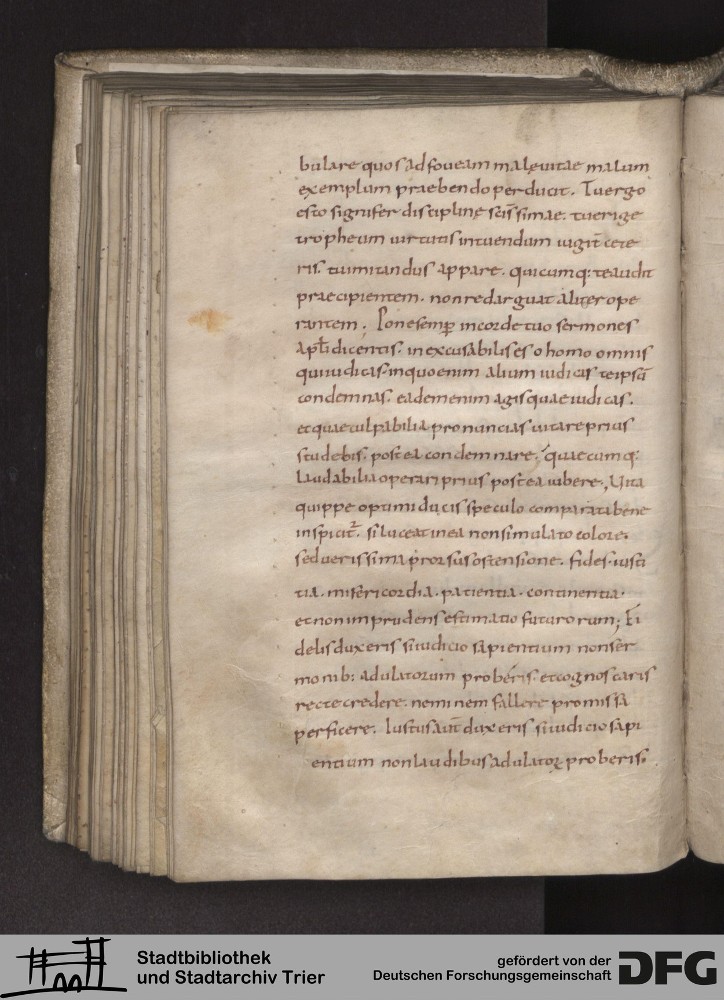 bulare quos ad foveam malę vitae malum
exemplum praebendo perducit. Tu ergo
esto signifer disciplinę scīssimae. tu erige
tropheum virtutis intuendum. vigiť cete
ris. tu imitandus appare. quicumq: te audit
praecipientem. non redarguat aliter ope
rantem. Pone semp̄ in corde tuo sermones
apłi dicentis. inexcusabilis es o homo omnis
qui iudicas. in quo enim alium iudicas te ipsū
condemnas. eadem enim agis quae iudicas.
et quae culpabilia pronuncias vitare prius
studebis. postea condemnare. quaecumq:
laudabilia operari prius postea iubere, Vita
quippe optimi ducis speculo comparata bene
inspicit2. si luceat in ea non simulato colore.
sed verissima prorsus ostensione. fides. iusti
tia. misericordia. patientia. continentia.
et non imprudens estimatio futurorum; Fi
delis dux eris si iudicio sapientium non ser
monib: adulatorum proberis. et cognos caris
recte credere. neminem fallere promissa
perficere. Iustus aūt dux eris si iudicio sapi
entium non laudibus adulatoꝝ proberis.
Stadtbibliothek
und Stadtarchiv Trier
gefördert von der
Deutschen Forschungsgemeinschaft
DFG